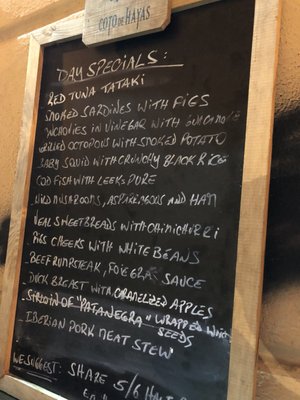 COTO DE HAYAS
DAY SPECIALS:
RED TUNA TATAKI
SMOKED SARDINES WITH FIGS
NCHOVIES IN VINEGAR WITH GUACAMOLE
GRILLED OCTOPOUS WITH SMOKED POTATO
BABY SQUID WITH CRUNCHY BLACK RICE
COD FISH WITH LEEKS PURE
WILD MUSHROOMS, ASPERAGOUS AND HAM
VEAL SWEETBREADS WITH CHIMICHURRI
PIGS CHEEKS WITH WHITE BEANS
BEEF RUMPSTEAK, FOIE GRAS SAUCE
DUCK BREAST WITH CARAMELIZED APPLES
SIRLOIN OF "PATANEGRA" WRAPPED WITH
SEEDS
IBERIAN PORK MEAT STEW
WE SUGGEST: SHARE 5/6 HALF